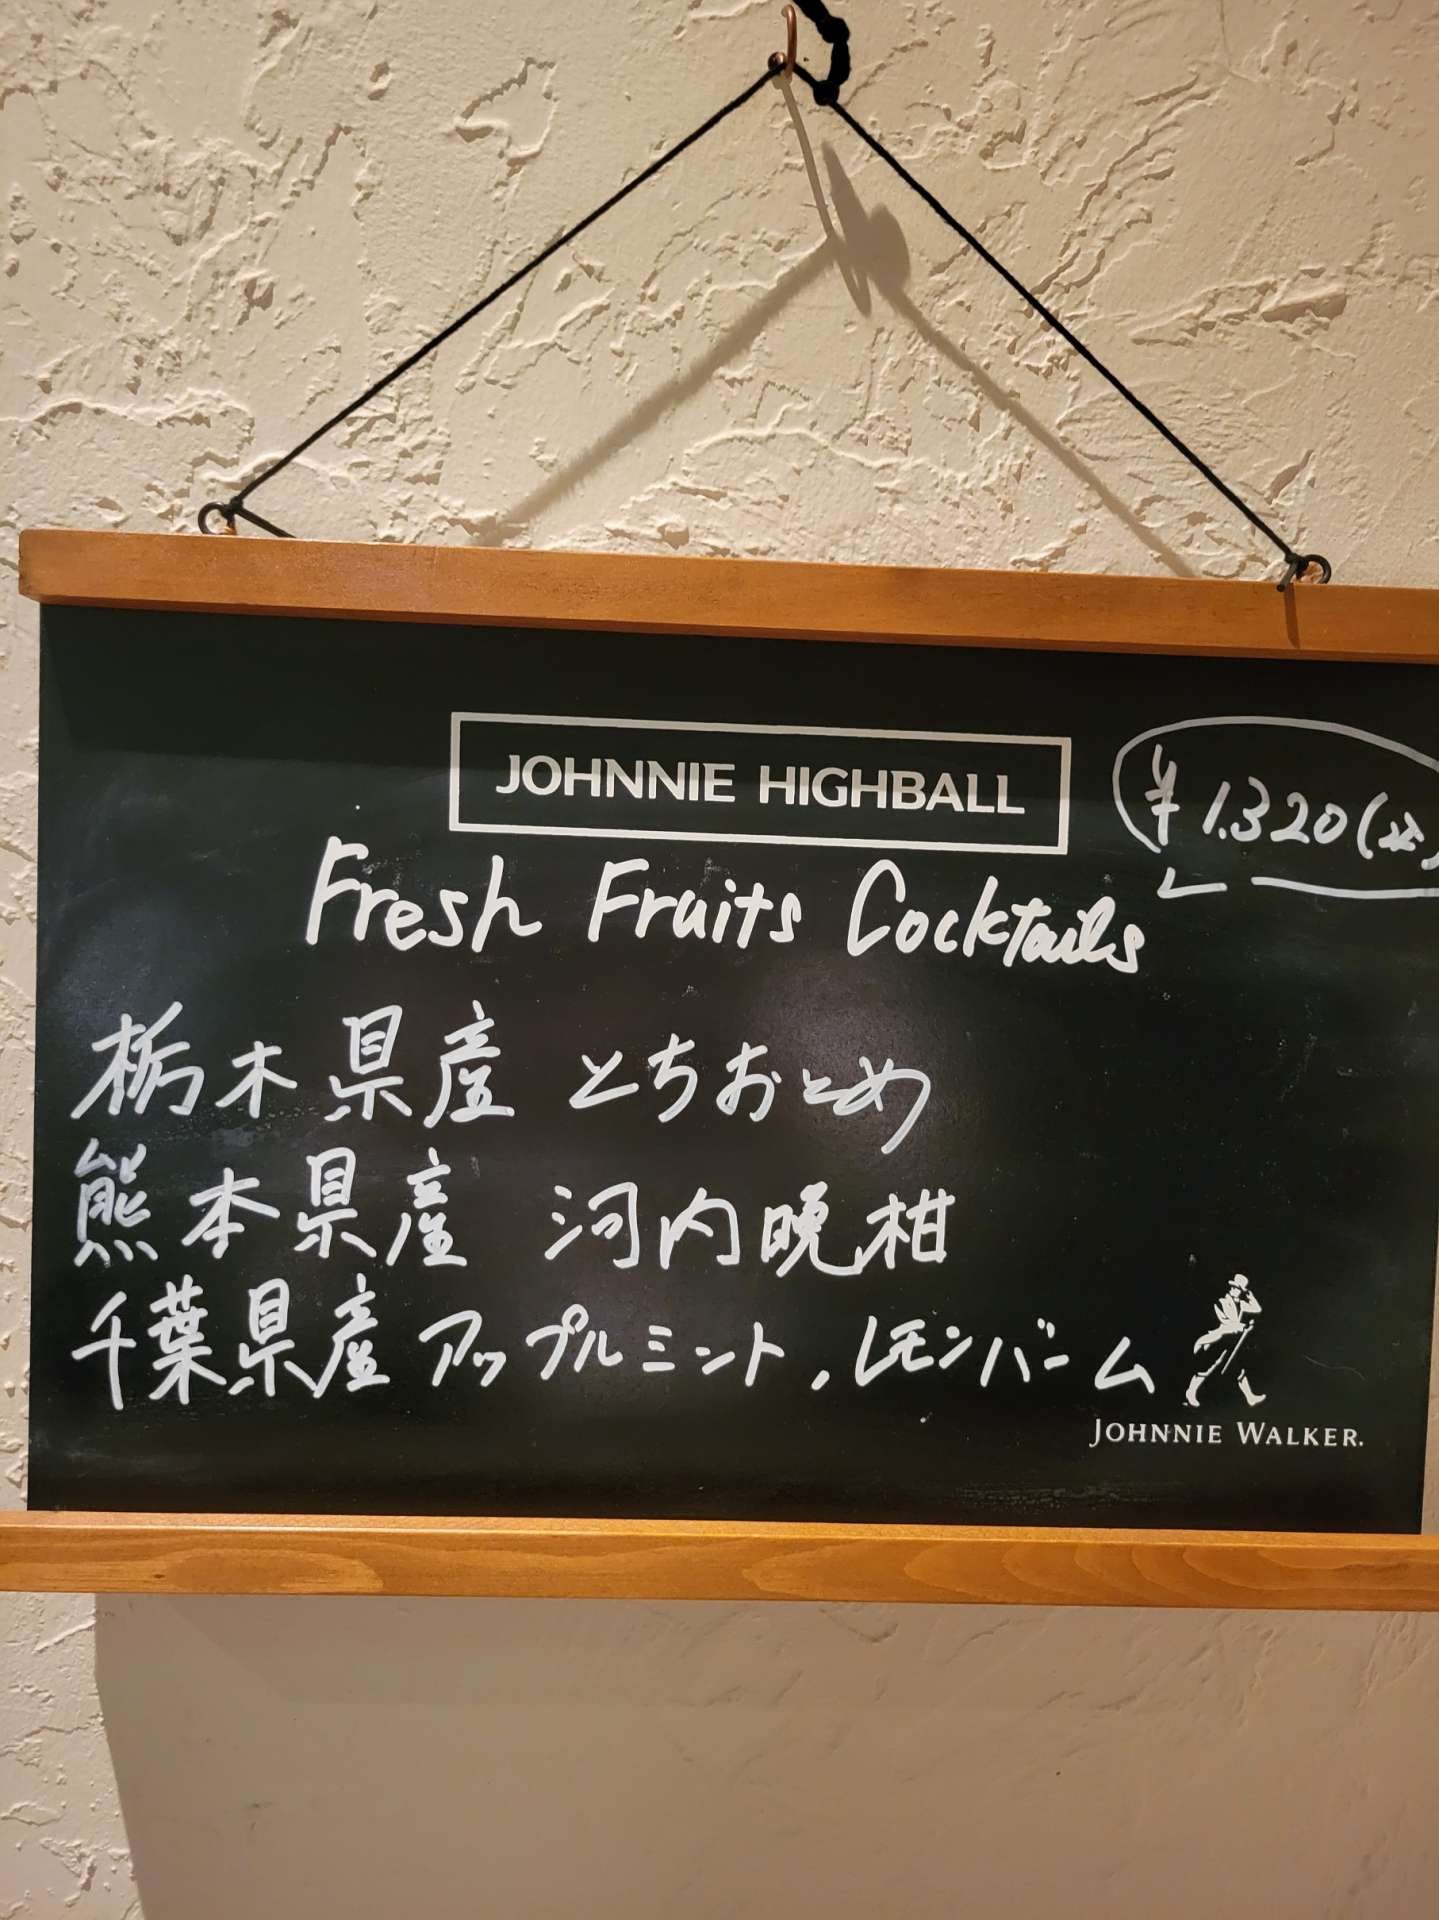 JOHNNIE HIGHBALL
¥1.320(込)
Fresh Fruits Cocktails
栃木県産 とちおとめ
熊本県産 河内晩柑
千葉県産 アップルミント,レモンバーム
JOHNNIE WALKER.